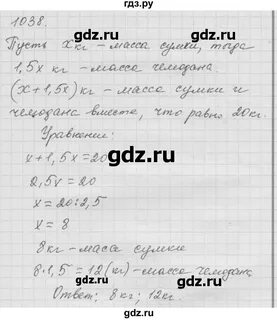 1038.
Пусть x кг - масса сумки, тогда
1,5x кг - масса чемодана.
(x+1,5x) кг - масса сумки и
чемодана вместе, что равно 20кг.
Уравнение:
x+1,5x=20
2,5x=20
x=20:2,5
x=8
8кг - масса сумки
8·1,5=12(кг) - масса чемодана
Ответ: 8кг; 12кг.
gdz.ru
gdz.ru
gdz.ru
gdz.ru
gdz.ru
gdz.ru
gdz.ru